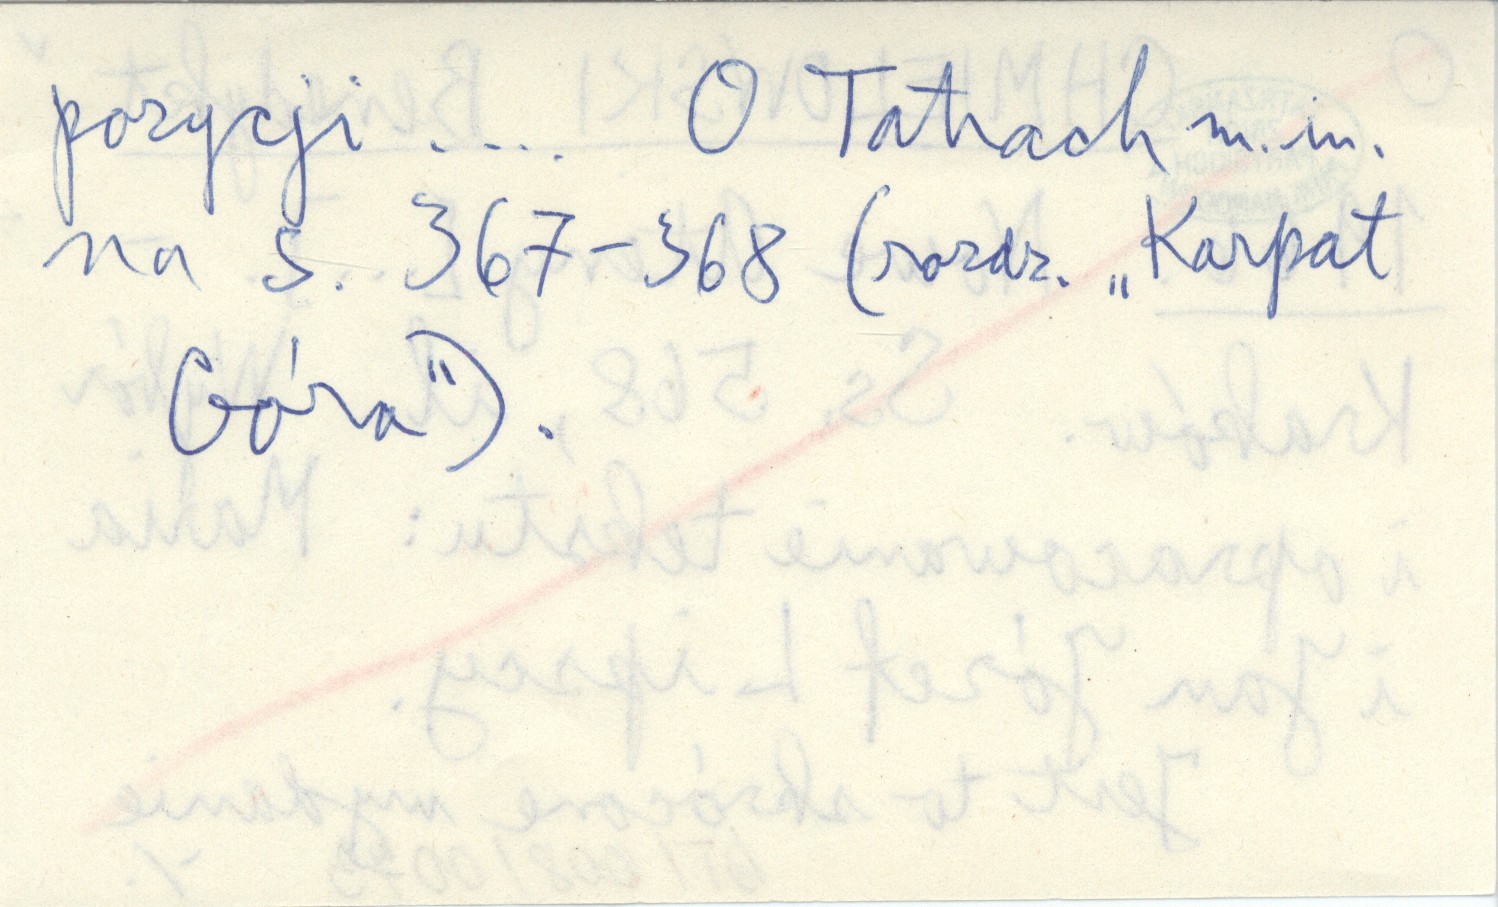 pozycji .... O Tatrach m.in.
na s. 367-368 (rozdz. „Karpat
Góra").